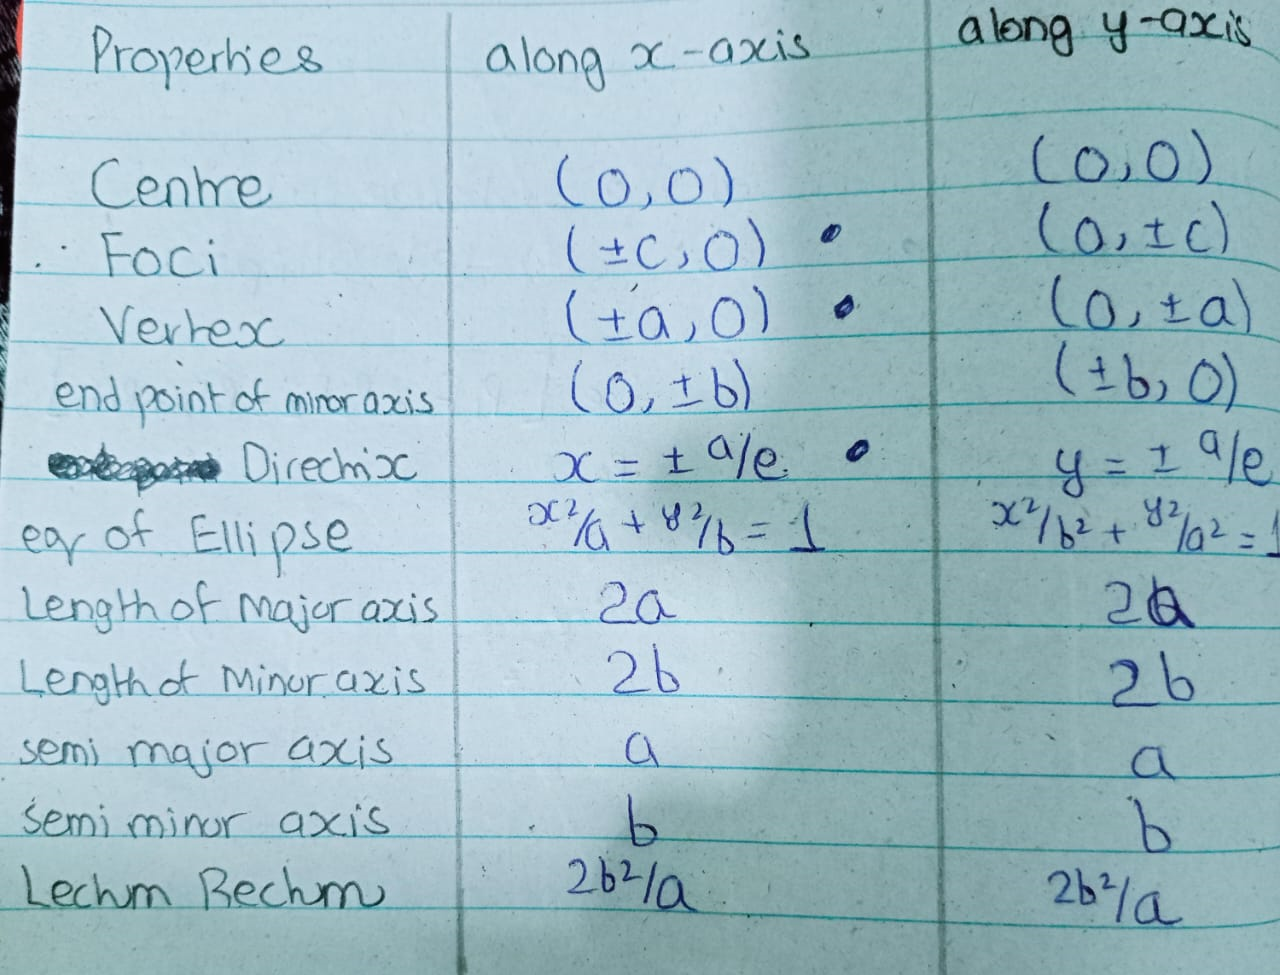 Properties along x-axis along y-axis
Centre (0,0) (0,0)
Foci (±c,0) (0,±c)
Vertex (±a,0) (0,±a)
end point of minor axis (0,±b) (±b,0)
Directrix x = ± a/e y = ± a/e
eq of Ellipse x²/a + y²/b = 1 x²/b² + y²/a² = 1
Length of Major axis 2a 2a
Length of Minor axis 2b 2b
semi major axis a a
semi minor axis b b
Lectum Rectum 2b²/a 2b²/a